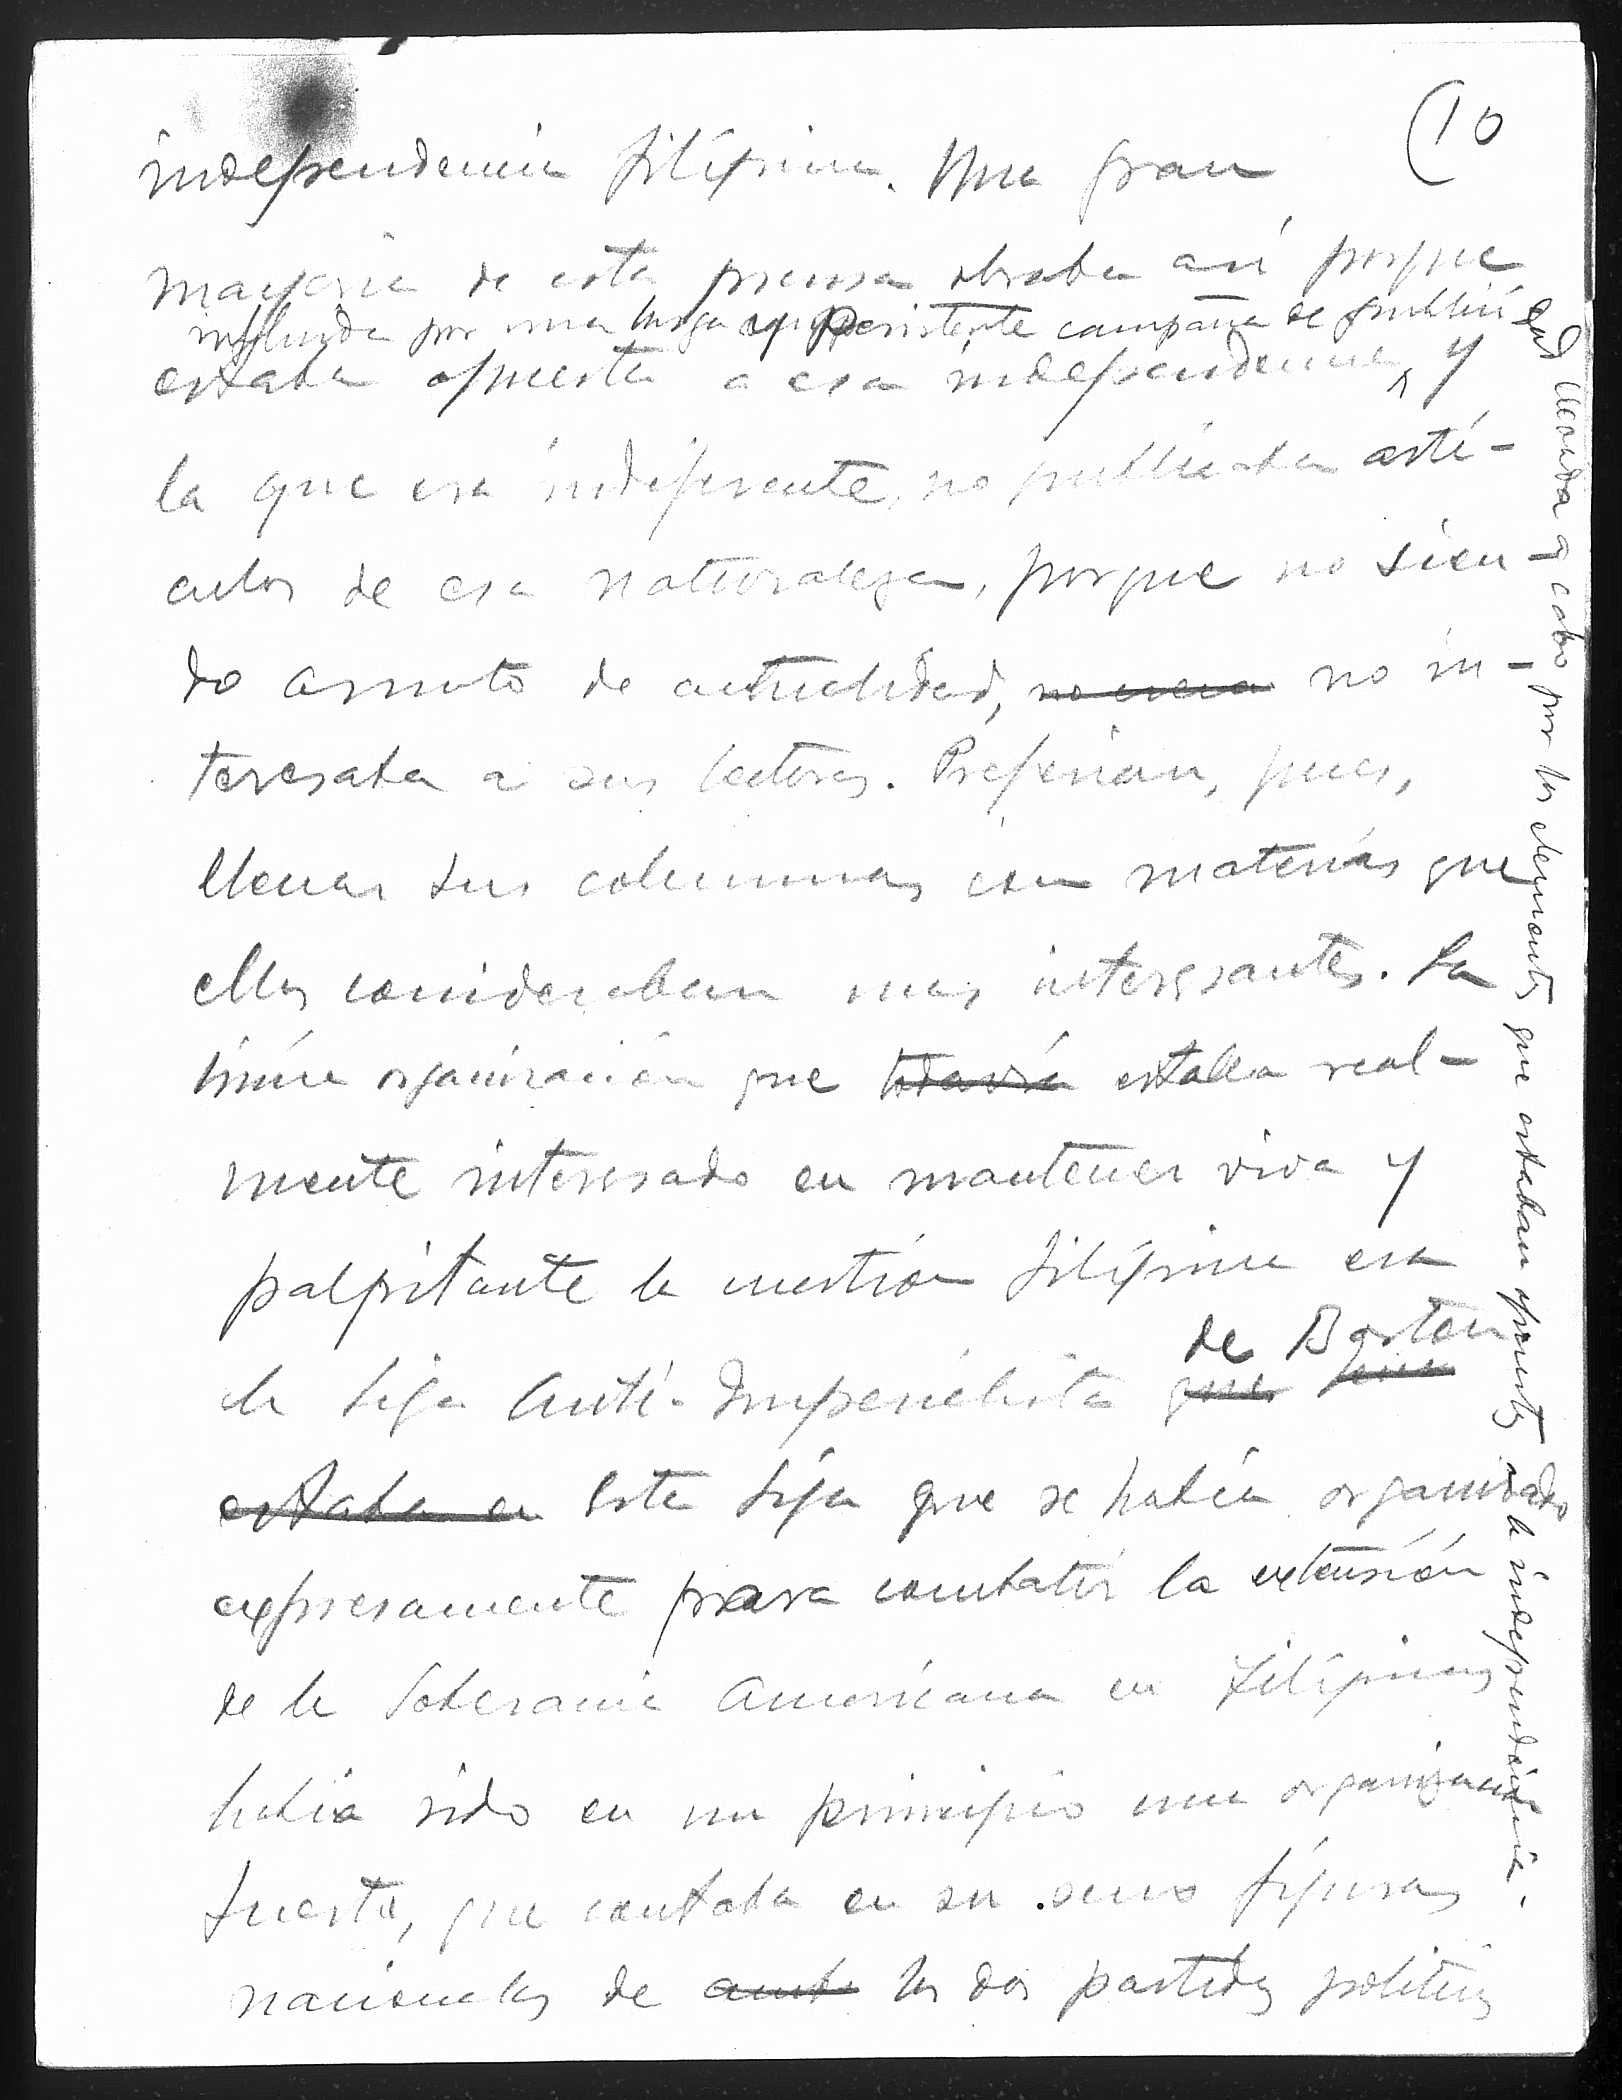 (10
independencia filipina. Una gran
mayoria de esta prensa obraba así porque
influida por una larga y persistente campaña de publici
dad llevada a cabo por los elementos que estaban opuestos a la independencia.
estaba opuesta a esa independencia, y
la que era indiferente, no publicaba arti-
culos de esa naturaleza, porque no sien-
do asunto de actualidad, no era no in-
teresaba a sus lectores. Preferian, pues,
llenar sus columnas con materias que
ellos consideraban mas interesantes. La
única organización que todavía estaba real-
mente interesado en mantener viva y
palpitante la cuestión filipina era
de Boston
la Liga Anti-Imperialista que
estaba en Esta Liga que se había organizado
expresamente para combatir la extensión
de la Soberania Americana en Filipinas
había sido en un principio una organización
fuerte, que contaba en su seno figuras
nacionales de ambo los dos partidos politicos